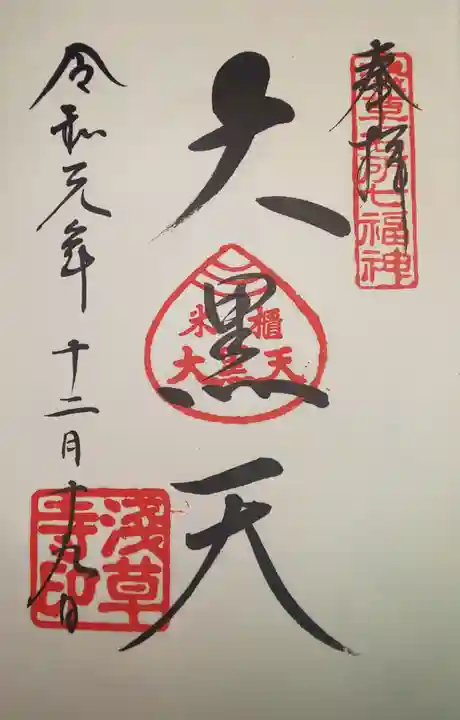 奉拝
浅草名所七福神
大黒天
米櫃
大黒天
令和元年十二月十九日
浅草寺印